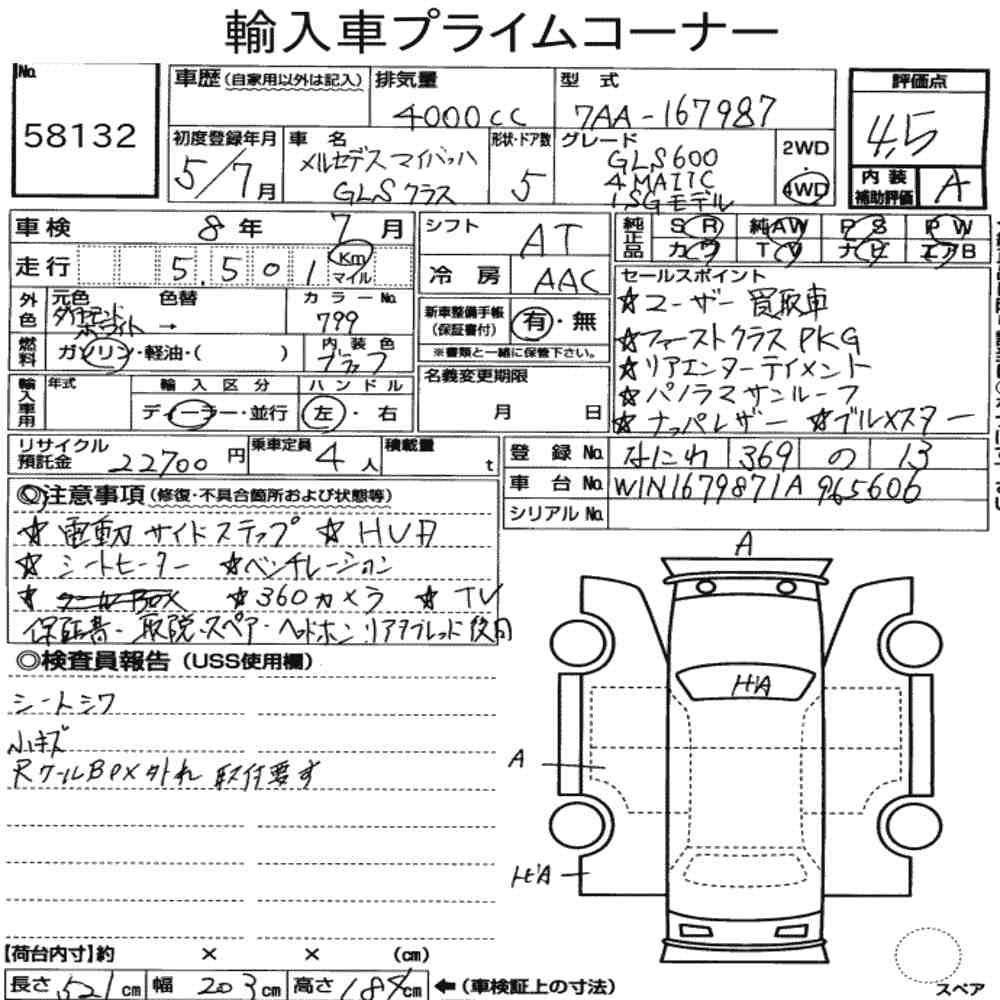 輸入車プライムコーナー
No.
58132
車歴(自家用以外は記入)
排気量
4000cc
型式
7AA-167987
評価点
4.5
初度登録年月
5/7月
車名
メルセデスマイバッハ
GLSクラス
形状・ドア数
5
グレード
GLS600
4MATIC
ISGモデル
2WD
4WD
内装
補助評価
A
車検 8年 7月
シフト
AT
純正品
SR 純AW PS PW
カワ TV ナビ エアB
走行 5,501 Km
マイル
冷房
AAC
セールスポイント
☆ユーザー買取車
☆ファーストクラスPKG
☆リアエンターテイメント
☆パノラマサンルーフ
☆ナッパレザー ☆ブルメスター
外色
元色 色替
ダイヤモンド
ホワイト →
カラーNo.
799
新車整備手帳
(保証書付)
有・無
※書類と一緒に保管下さい。
燃料
ガソリン・軽油・( )
内装色
ブラック
輸入車用
年式
輸入区分
ディーラー・並行
ハンドル
左・右
名義変更期限
月 日
リサイクル
預託金 22700円
乗車定員 4人
積載量 t
登録No. なにわ 369 の 13
車台No. W1N1679871A965606
シリアルNo.
◎注意事項(修復・不具合箇所および状態等)
☆電動サイドステップ ☆HUD
☆シートヒーター ☆ベンチレーション
☆クールBOX ☆360カメラ ☆TV
保証書・取説・スペア・ヘッドホン・リアタブレット使用
◎検査員報告(USS使用欄)
シートシワ
小キズ
Rクール BOX外れ 取付要す
A
HA
A
HA
【荷台内寸】約 × × (cm)
長さ 521cm 幅 203cm 高さ 184cm ←(車検証上の寸法)
スペア